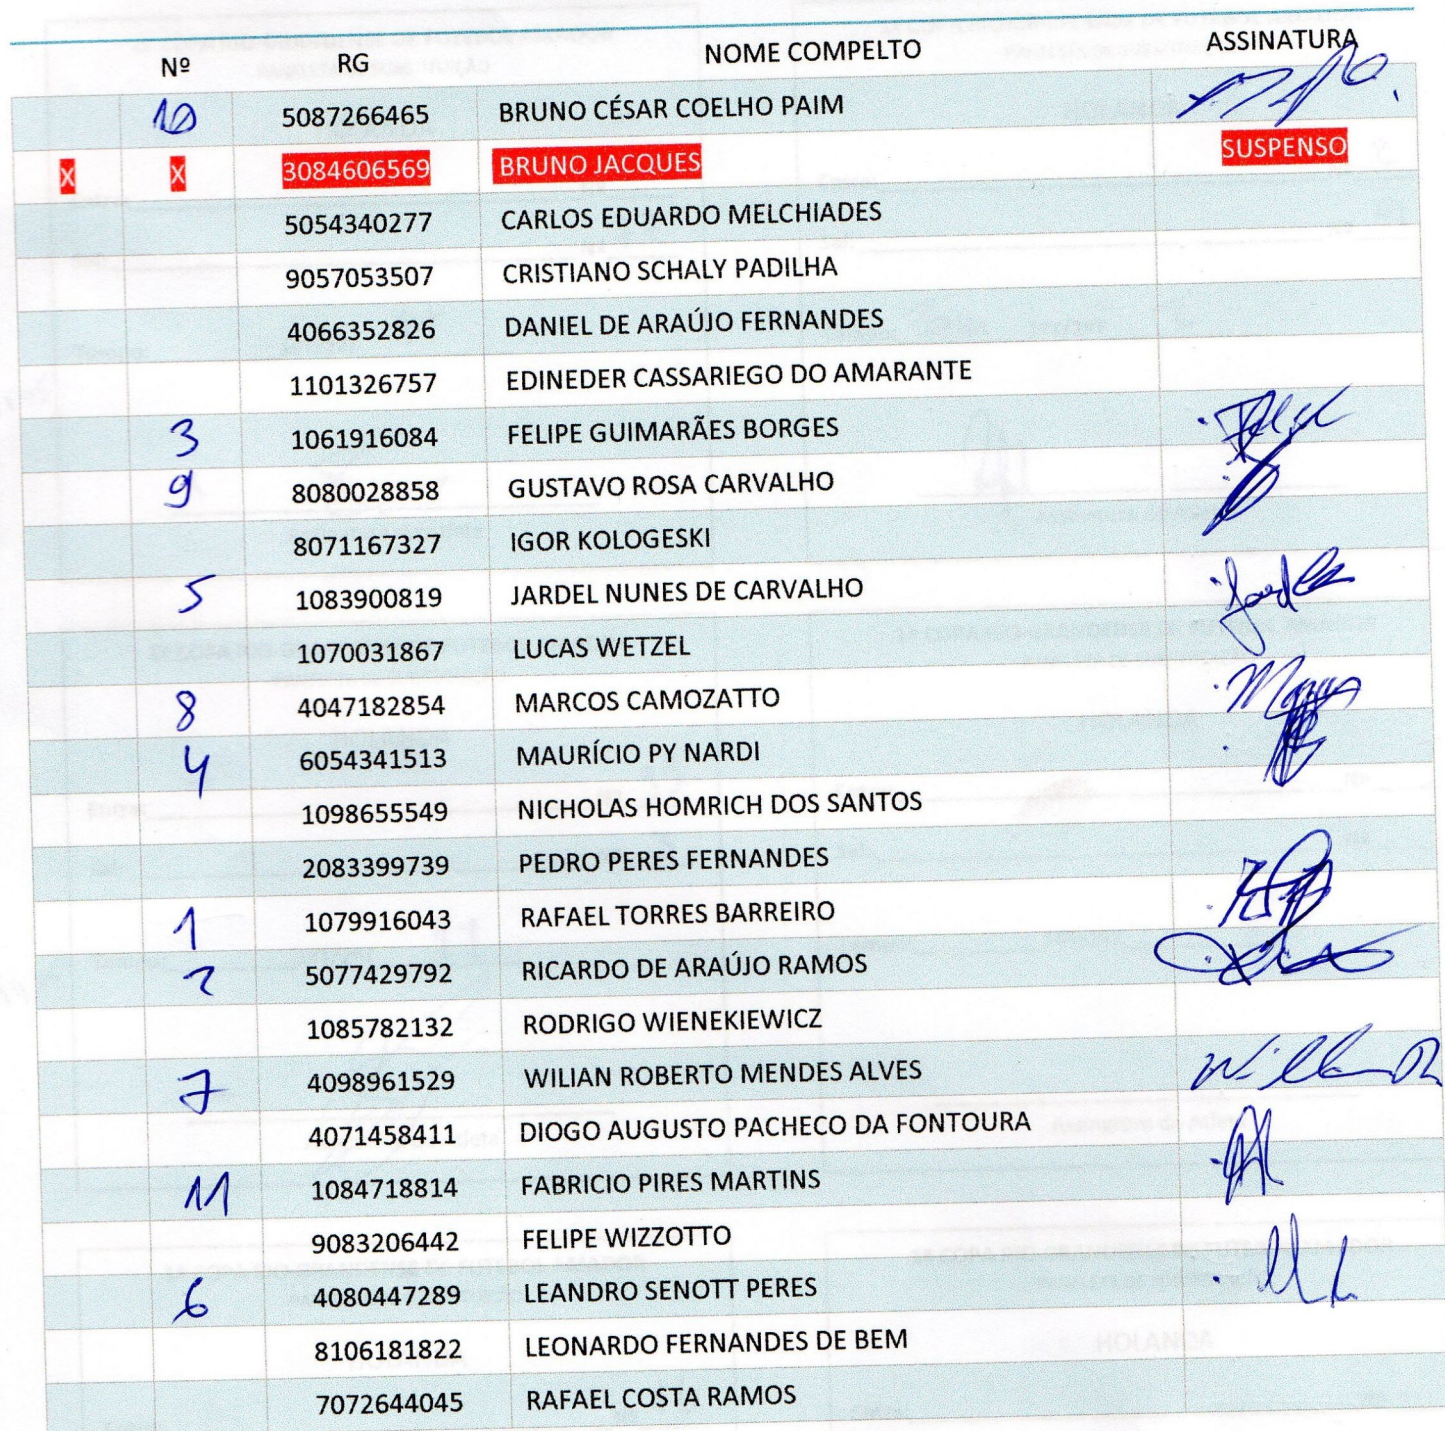 Nº RG NOME COMPELTO ASSINATURA
10 5087266465 BRUNO CÉSAR COELHO PAIM
X X 3084606569 BRUNO JACQUES SUSPENSO
5054340277 CARLOS EDUARDO MELCHIADES
9057053507 CRISTIANO SCHALY PADILHA
4066352826 DANIEL DE ARAÚJO FERNANDES
1101326757 EDINEDER CASSARIEGO DO AMARANTE
3 1061916084 FELIPE GUIMARÃES BORGES
9 8080028858 GUSTAVO ROSA CARVALHO
8071167327 IGOR KOLOGESKI
5 1083900819 JARDEL NUNES DE CARVALHO
1070031867 LUCAS WETZEL
8 4047182854 MARCOS CAMOZATTO
4 6054341513 MAURÍCIO PY NARDI
1098655549 NICHOLAS HOMRICH DOS SANTOS
2083399739 PEDRO PERES FERNANDES
1 1079916043 RAFAEL TORRES BARREIRO
2 5077429792 RICARDO DE ARAÚJO RAMOS
1085782132 RODRIGO WIENEKIEWICZ
7 4098961529 WILIAN ROBERTO MENDES ALVES
4071458411 DIOGO AUGUSTO PACHECO DA FONTOURA
11 1084718814 FABRICIO PIRES MARTINS
9083206442 FELIPE WIZZOTTO
6 4080447289 LEANDRO SENOTT PERES
8106181822 LEONARDO FERNANDES DE BEM
7072644045 RAFAEL COSTA RAMOS